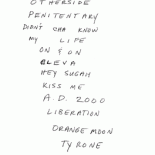 OTHERSIDE
PENITENTIARY
DIDN'T CHA KNOW
MY LIFE
ON & ON
CLEVA
HEY SUGAH
KISS ME
A.D. 2000
LIBERATION
ORANGE MOON
TYRONE